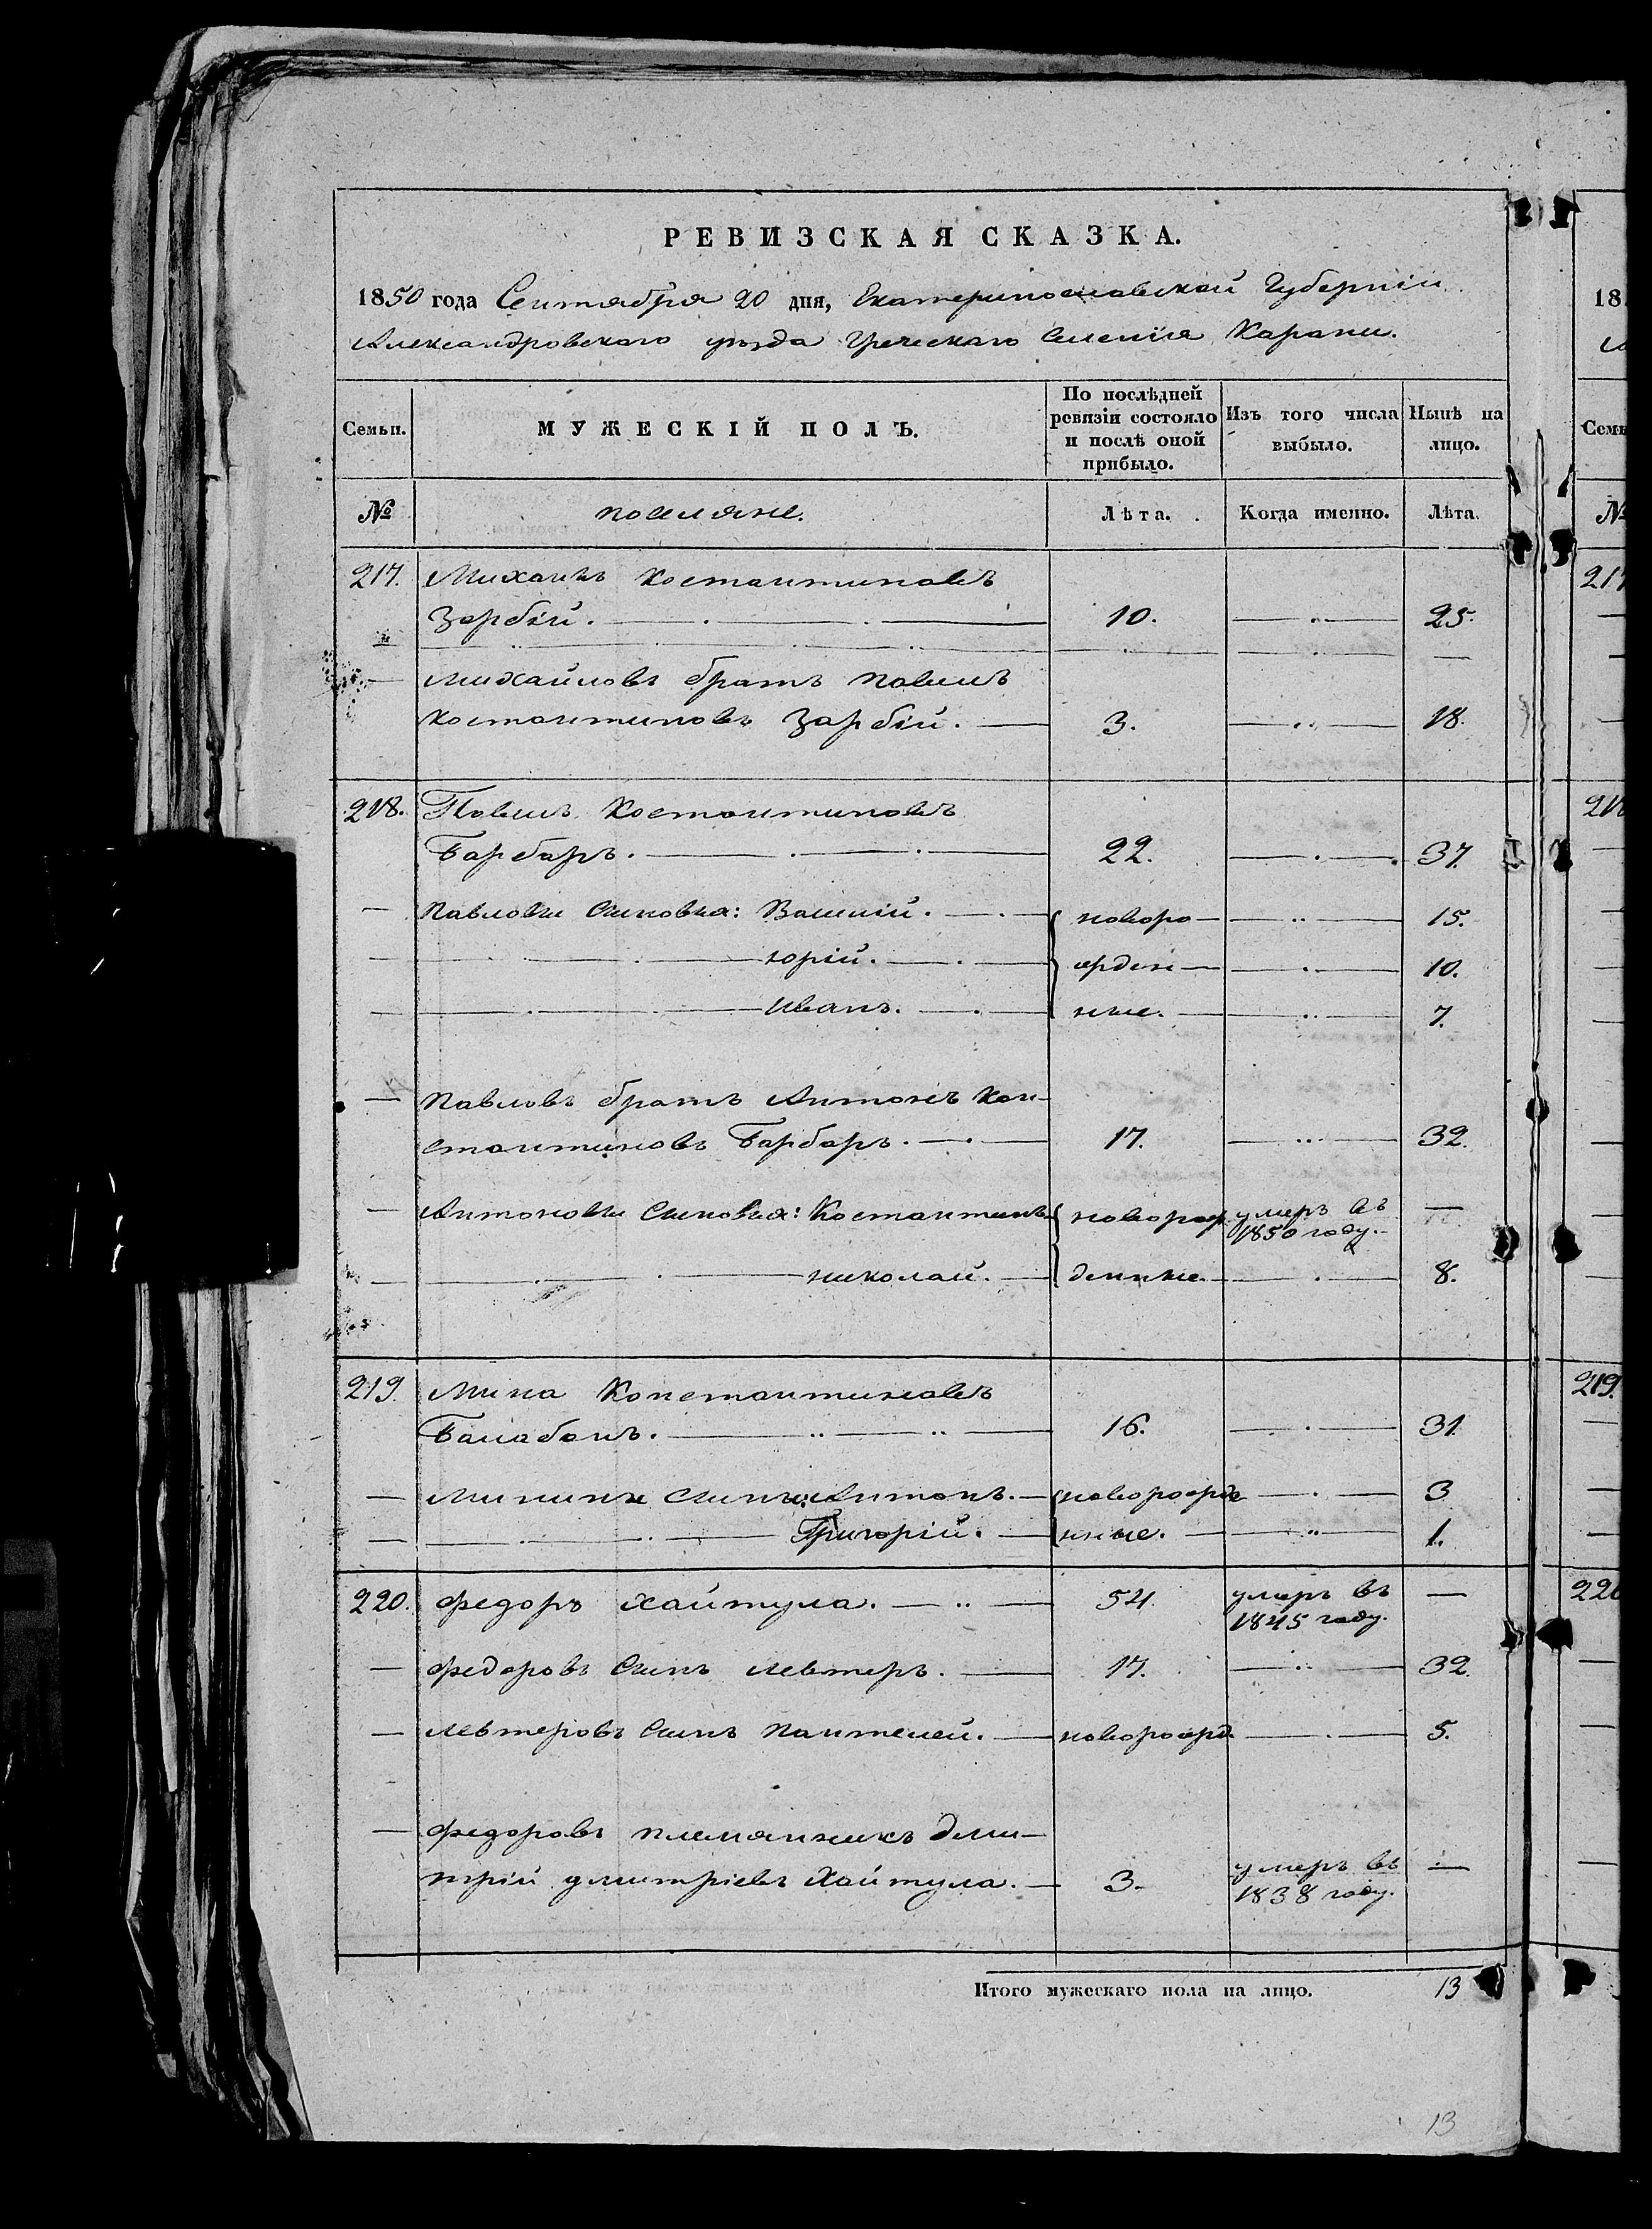 РЕВИЗСКАЯ СКАЗКА.
1850 года Сентября 20 дня, Екатеринославской Губернiи
Александровскаго уѣзда Греческаго Селенiя Карани.
Семьи. МУЖЕСКIЙ ПОЛЪ. По послѣдней ревизiи состояло и послѣ оной прибыло. Изъ того числа выбыло. Нынѣ на лицо.
№ поселяне. Лѣта. Когда именно. Лѣта.
217. Михаилъ Костантиновъ
Зарбiй. 10. 25.
Михайловъ братъ Павелъ
Костантиновъ Зарбiй. 3. 18.
218. Павелъ Костантиновъ
Барбаръ. 22. 37.
Павловы Сыновья: Василiй. новоро 15.
юрiй. жден 10.
иванъ. ные. 7.
Павловъ братъ Антонъ Кон-
стантиновъ Барбаръ. 17. 32.
Антоновы Сыновья: Костантинъ новорож умеръ въ 1850 году. —
николай. денные. 8.
219. Мина Константиновъ
Балабанъ. 16. 31.
Минины Сыны: Антонъ. новорожде 3
Григорiй. нные. 1.
220. Федоръ Хайтула. 54. умеръ въ 1845 году. —
Федоровъ Сынъ Левтеръ. 17. 32.
Левтеровъ Сынъ Пантелей. новорожд. 5.
Федоровъ племянникъ Дми-
трiй дмитрiевъ Хайтула. 3. умеръ въ 1838 году. —
Итого мужескаго пола на лицо. 13
13
18
Семь
№
217
218
219.
220